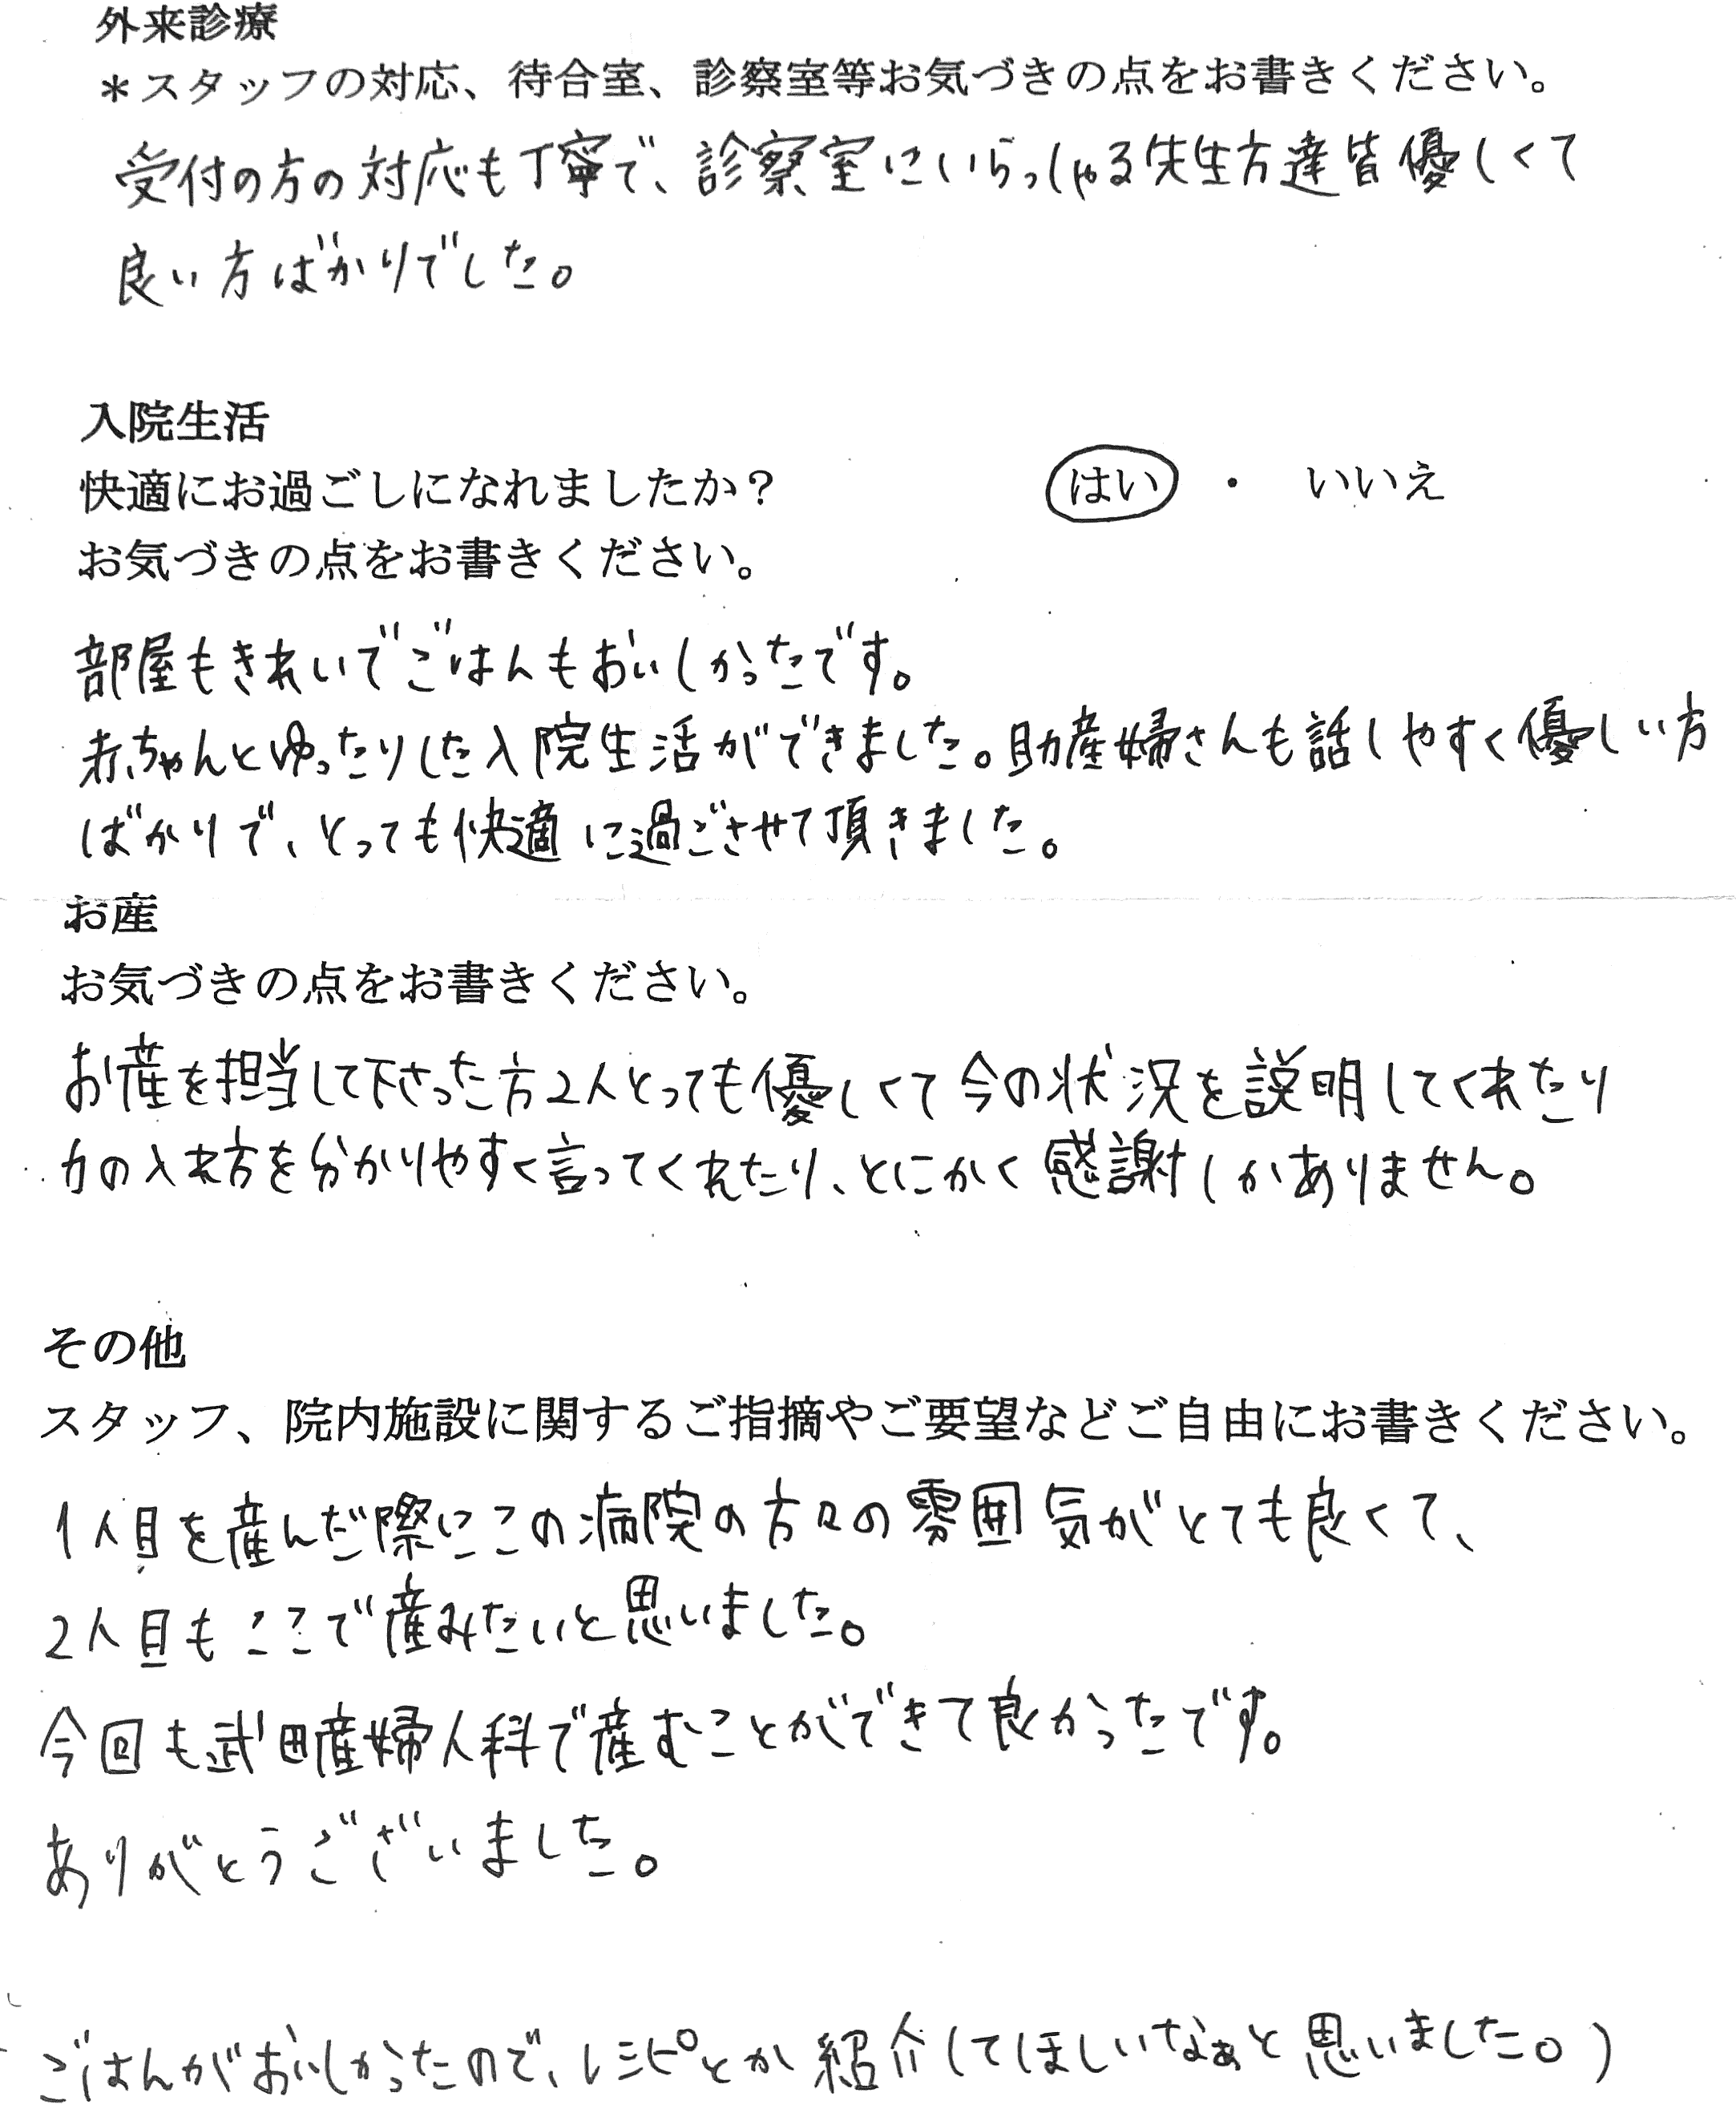 外来診療
＊スタッフの対応、待合室、診察室等お気づきの点をお書きください。
受付の方の対応も丁寧で、診察室にいらっしゃる先生方達皆優しくて
良い方ばかりでした。
入院生活
快適にお過ごしになれましたか？ はい ・ いいえ
お気づきの点をお書きください。
部屋もきれいでごはんもおいしかったです。
赤ちゃんとゆったりした入院生活ができました。助産婦さんも話しやすく優しい方
ばかりで、とっても快適に過ごさせて頂きました。
お産
お気づきの点をお書きください。
お産を担当して下さった方2人とっても優しくて今の状況を説明してくれたり
力の入れ方を分かりやすく言ってくれたり、とにかく感謝しかありません。
その他
スタッフ、院内施設に関するご指摘やご要望などご自由にお書きください。
1人目を産んだ際にこの病院の方々の雰囲気がとても良くて、
2人目もここで産みたいと思いました。
今回も武田産婦人科で産むことができて良かったです。
ありがとうございました。
ごはんがおいしかったので、レシピとか紹介してほしいなぁと思いました。)